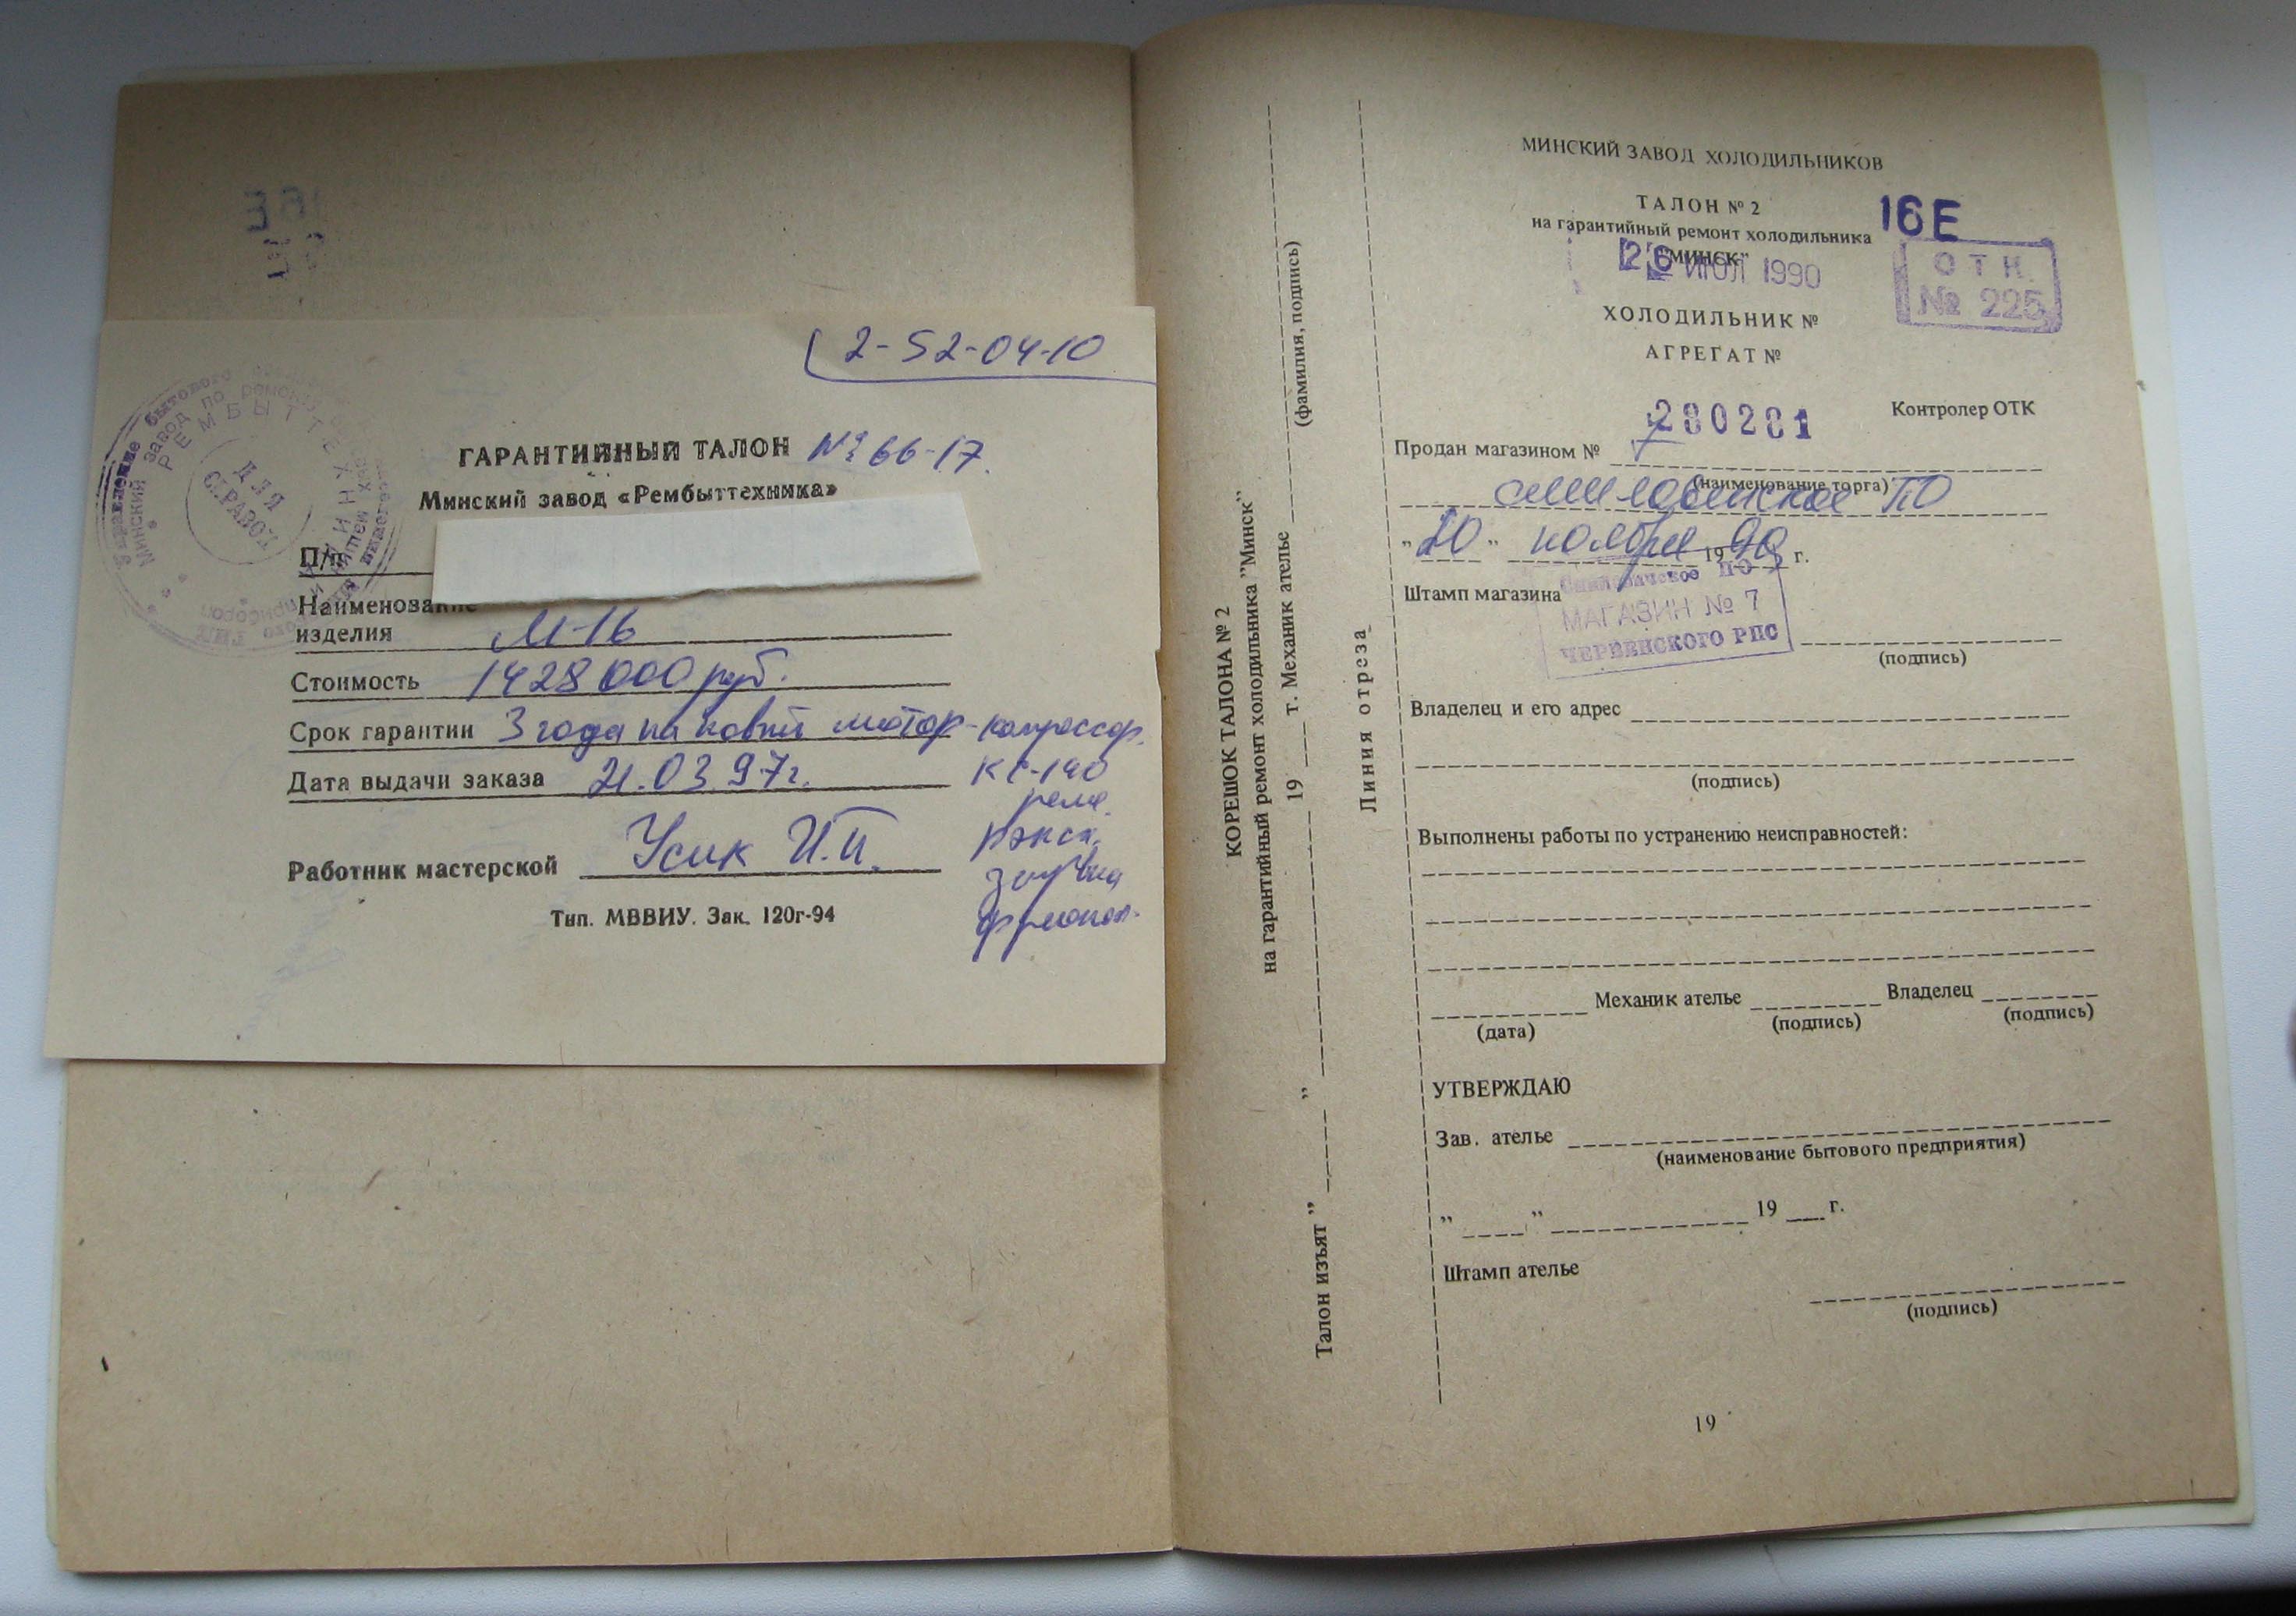 2-52-04-10
ГАРАНТИЙНЫЙ ТАЛОН № 66-17.
Минский завод «Рембыттехника»
РЕМБЫТТЕХНИКА
ДЛЯ
СПРАВОК
П/п
Наименование
изделия М-16
Стоимость 1428000 руб.
Срок гарантии 3 года на новый мотор-компрессор.
Дата выдачи заказа 21.03.97г.
КС-140
реле
Работник мастерской Усик И.П.
Тип. МВВИУ. Зак. 120г-94
КОРЕШОК ТАЛОНА № 2
на гарантийный ремонт холодильника "Минск"
Талон изъят " " 19 т. Механик ателье
(фамилия, подпись)
Линия отреза
МИНСКИЙ ЗАВОД ХОЛОДИЛЬНИКОВ
ТАЛОН № 2
на гарантийный ремонт холодильника 16Е
"МИНСК"
26 ИЮЛ 1990
ОТК
№ 225
ХОЛОДИЛЬНИК №
АГРЕГАТ №
280281
Контролер ОТК
Продан магазином № 7
(наименование торга)
Смиловичское ПО
"20" ноября 1990 г.
Штамп магазина
Смиловичское ПО
МАГАЗИН № 7
ЧЕРВЕНСКОГО РПС
(подпись)
Владелец и его адрес
(подпись)
Выполнены работы по устранению неисправностей:
Механик ателье Владелец
(дата) (подпись) (подпись)
УТВЕРЖДАЮ
Зав. ателье
(наименование бытового предприятия)
" " 19 г.
Штамп ателье
(подпись)
19